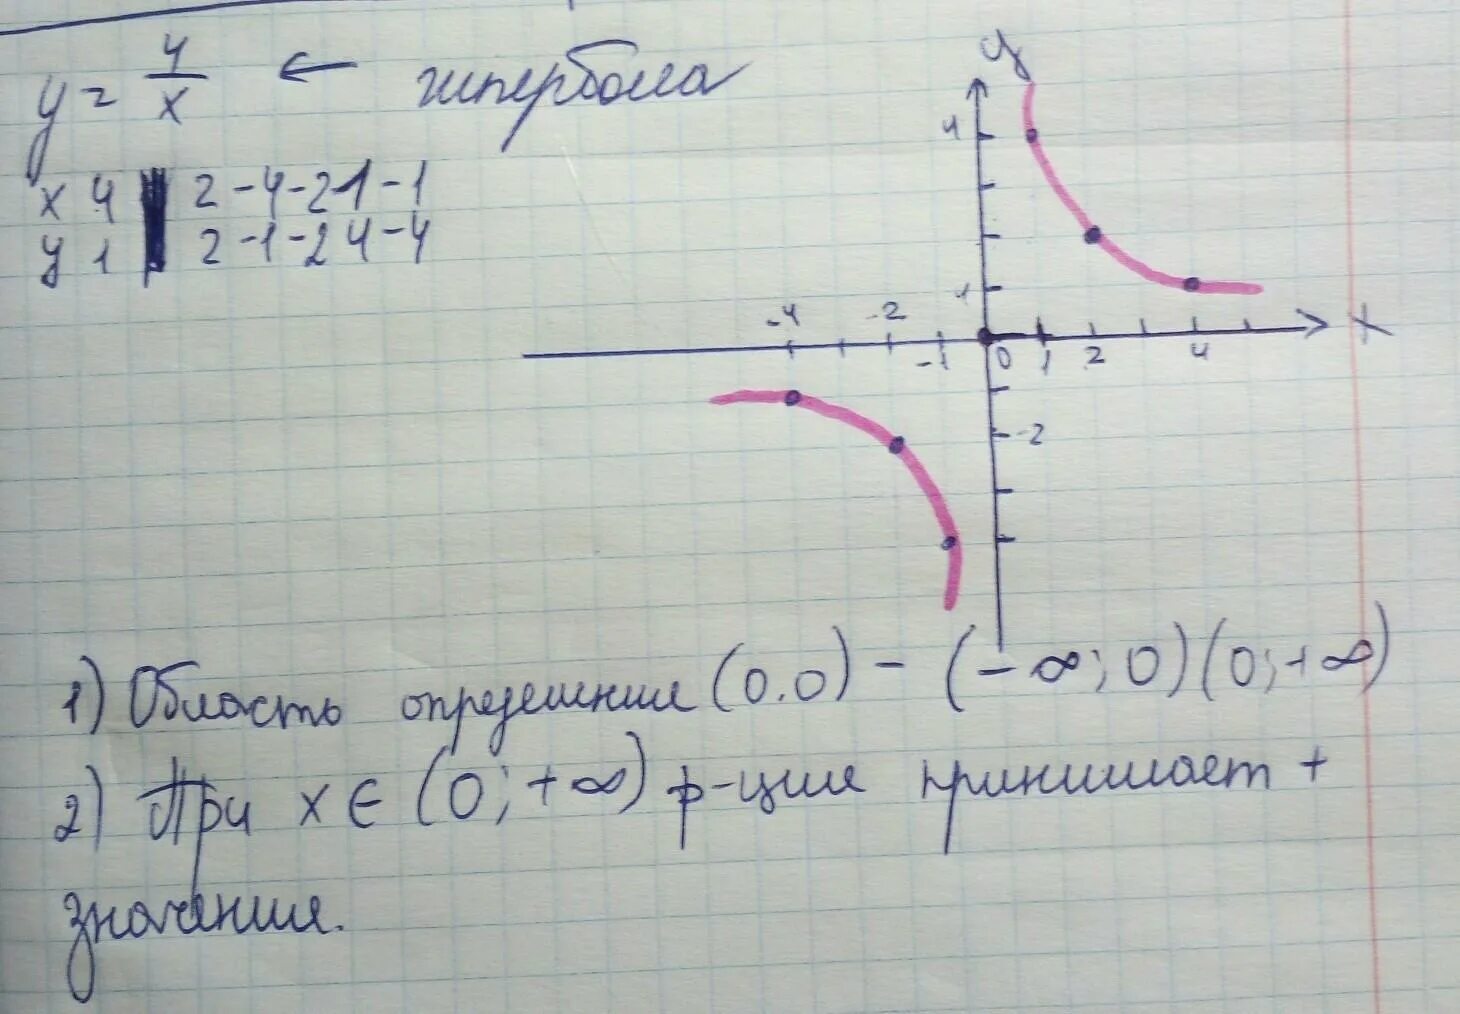 y = 4/x ← гипербола
x 4 2 -4 -2 1 -1
y 1 2 -1 -2 4 -4
y
4
1
-4 -2 -1 0 1 2 4 x
-2
1) Область определения (0.0) - (-∞; 0)(0; +∞)
2) При x ∈ (0; +∞) ф-ция принимает +
значения.